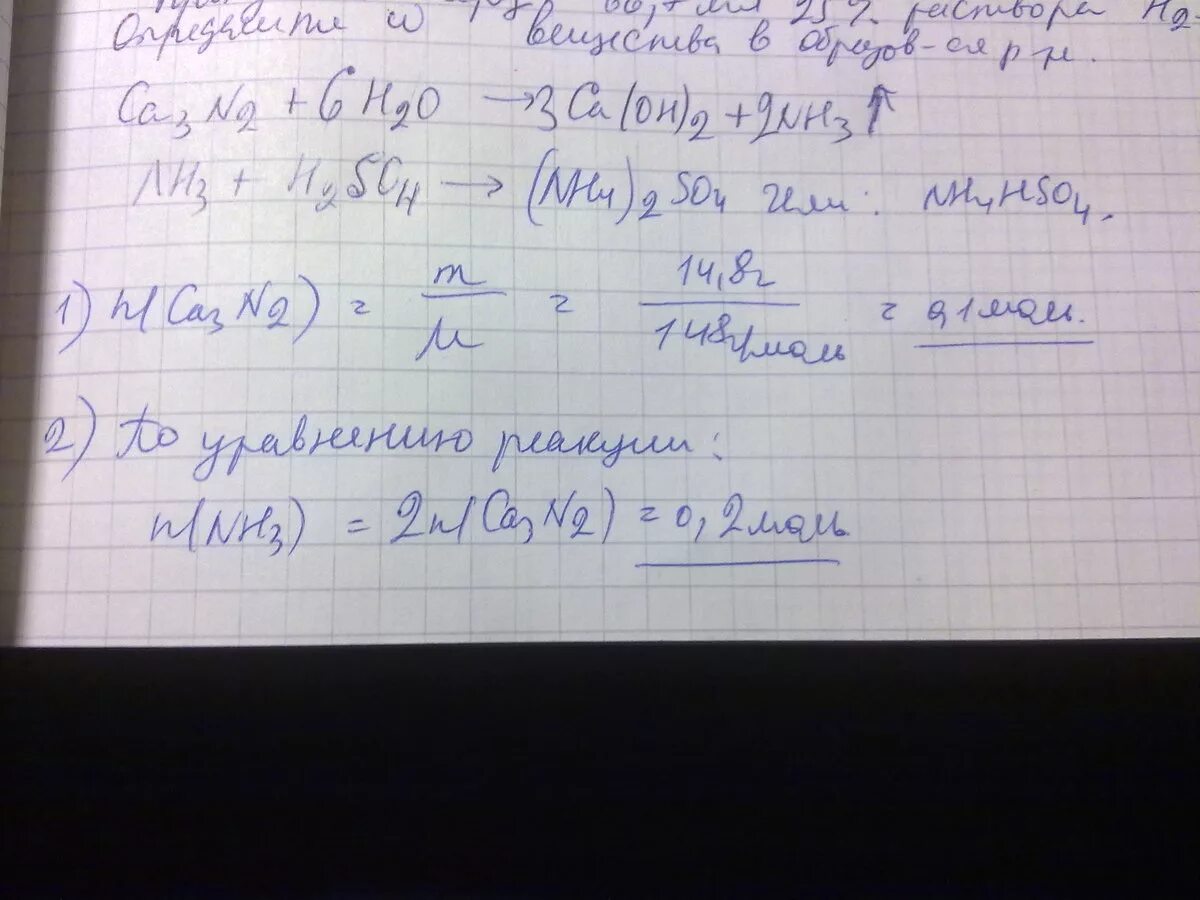 25% раствора H2
Определите ω вещества в образов-ся р-ре.
Ca3N2 + 6H2O → 3Ca(OH)2 + 2NH3↑
NH3 + H2SO4 → (NH4)2SO4 или: NH4HSO4.
1) n(Ca3N2) = m/M = 14,8г/148г/моль = 0,1моль.
2) По уравнению реакции:
n(NH3) = 2n(Ca3N2) = 0,2моль